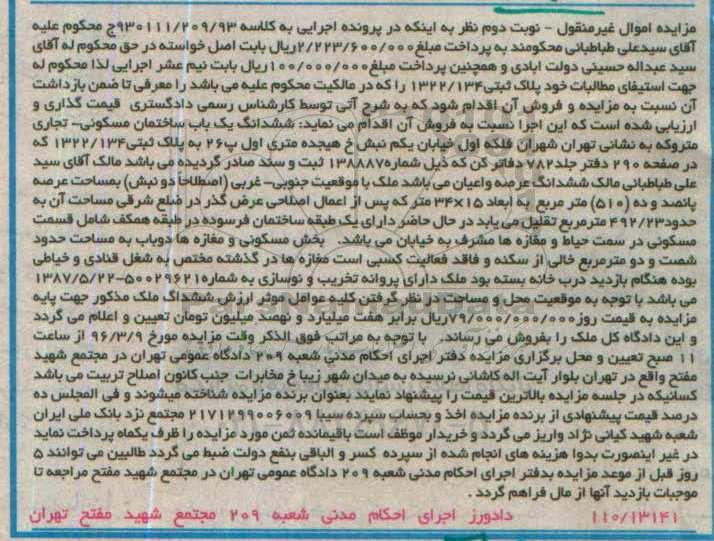 مزایده اموال غیرمنقول - نوبت دوم نظر به اینکه در پرونده اجرایی به کلاسه ۹۳۰۱۱۱/۲۰۹/۹۳ج محکوم علیه
آقای سیدعلی طباطبائی محکومند به پرداخت مبلغ ۲/۲۲۳/۶۰۰/۰۰۰ریال بابت اصل خواسته در حق محکوم له آقای
سید عبداله حسینی دولت ابادی و همچنین پرداخت مبلغ ۱۰۰/۰۰۰/۰۰۰ریال بابت نیم عشر اجرایی لذا محکوم له
جهت استیفای مطالبات خود پلاک ثبتی ۱۳۲۲/۱۳۴ را که در مالکیت محکوم علیه می باشد را معرفی تا ضمن بازداشت
آن نسبت به مزایده و فروش آن اقدام شود که به شرح آتی توسط کارشناس رسمی دادگستری قیمت گذاری و
ارزیابی شده است که این اجرا نسبت به فروش آن اقدام می نماید: ششدانگ یک باب ساختمان مسکونی- تجاری
متروکه به نشانی تهران شهران فلکه اول خیابان یکم نبش خ هیجده متری اول پ۲۶ به پلاک ثبتی ۱۳۲۲/۱۳۴ که
در صفحه ۲۹۰ دفتر جلد۷۸۲ دفاتر کن که ذیل شماره ۱۳۸۸۸۷ ثبت و سند صادر گردیده می باشد مالک آقای سید
علی طباطبائی مالک ششدانگ عرصه واعیان می باشد ملک با موقعیت جنوبی- غربی (اصطلاحا دو نبش) بمساحت عرصه
پانصد و ده (۵۱۰) متر مربع به ابعاد ۱۵×۳۴ متر که پس از اعمال اصلاحی عرض گذر در ضلع شرقی مساحت آن به
حدود ۴۹۲/۲۳ مترمربع تقلیل می یابد در حال حاضر دارای یک طبقه ساختمان فرسوده در طبقه همکف شامل قسمت
مسکونی در سمت حیاط و مغازه ها مشرف به خیابان می باشد. بخش مسکونی و مغازه ها دوباب به مساحت حدود
شصت و دو مترمربع خالی از سکنه و فاقد فعالیت کسبی است مغازه ها در گذشته مختص به شغل قنادی و خیاطی
بوده هنگام بازدید درب خانه بسته بود ملک دارای پروانه تخریب و نوسازی به شماره ۵۰۰۲۹۶۲۱-۱۳۸۷/۵/۲۲
می باشد با توجه به موقعیت محل و مساحت در نظر گرفتن کلیه عوامل موثر ارزش ششدانگ ملک مذکور جهت پایه
مزایده به قیمت روز ۷۹/۰۰۰/۰۰۰/۰۰۰ریال برابر هفت میلیارد و نهصد میلیون تومان تعیین و اعلام می گردد
و این دادگاه کل ملک را بفروش می رساند. با توجه به مراتب فوق الذکر وقت مزایده مورخ ۹۶/۳/۹ از ساعت
۱۱ صبح تعیین و محل برگزاری مزایده دفتر اجرای احکام مدنی شعبه ۲۰۹ دادگاه عمومی تهران در مجتمع شهید
مفتح واقع در تهران بلوار آیت اله کاشانی نرسیده به میدان شهر زیبا خ مخابرات جنب کانون اصلاح تربیت می باشد
کسانیکه در جلسه مزایده بالاترین قیمت را پیشنهاد نمایند بعنوان برنده مزایده شناخته میشوند و فی المجلس ده
درصد قیمت پیشنهادی از برنده مزایده اخذ و بحساب سپرده سیبا ۲۱۷۱۲۹۹۰۰۶۰۰۹ مجتمع نزد بانک ملی ایران
شعبه شهید کیانی نژاد واریز می گردد و خریدار موظف است باقیمانده ثمن مورد مزایده را ظرف یکماه پرداخت نماید
در غیر اینصورت بدوا هزینه های انجام شده از سپرده کسر و الباقی بنفع دولت ضبط می گردد طالبین می توانند ۵
روز قبل از موعد مزایده بدفتر اجرای احکام مدنی شعبه ۲۰۹ دادگاه عمومی تهران در مجتمع شهید مفتح مراجعه تا
موجبات بازدید آنها از مال فراهم گردد .
۱۱۰/۱۳۱۴۱ دادورز اجرای احکام مدنی شعبه ۲۰۹ مجتمع شهید مفتح تهران